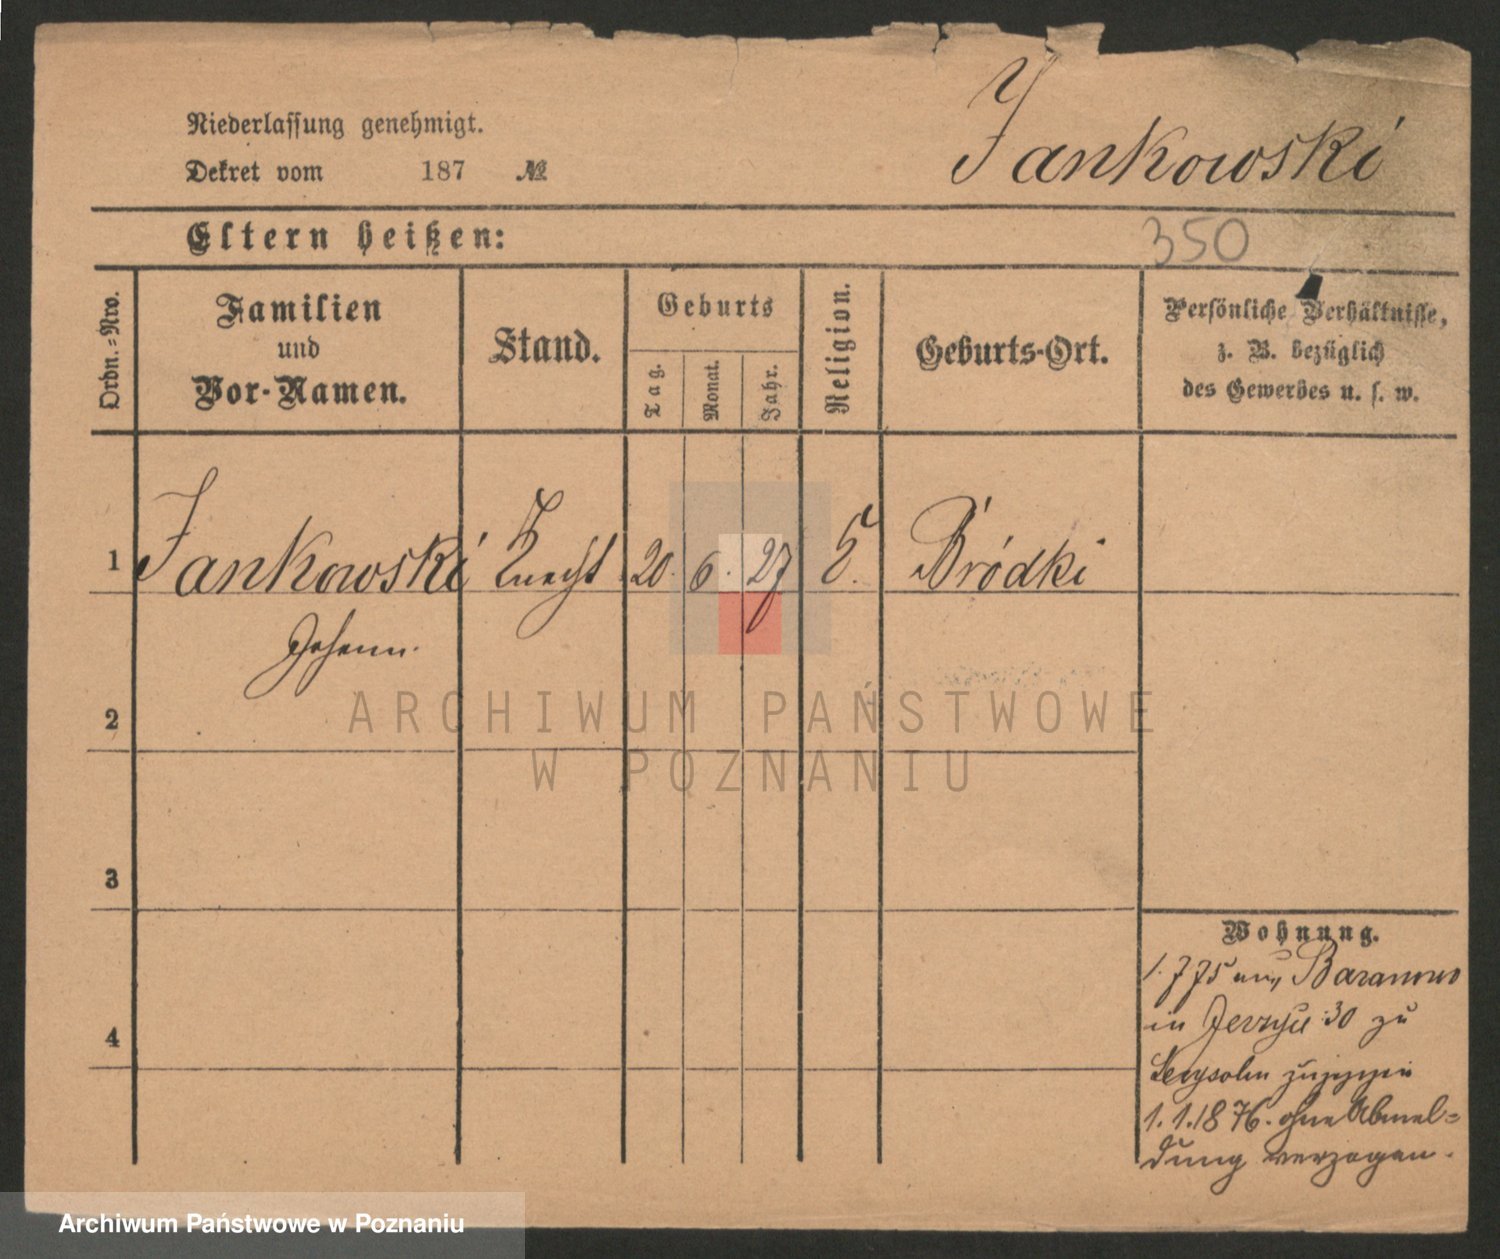 Jankowski
Niederlassung genehmigt.
Dekret vom 187 №
Eltern heißen:
350
Ordn.-Nro.
Familien
und
Vor-Namen.
Stand.
Geburts
Tag.
Monat.
Jahr.
Religion.
Geburts-Ort.
Persönliche Verhältnisse,
z. B. bezüglich
des Gewerbes u. s. w.
1 Jankowski Knecht 20. 6. 27 Bródki
Johann.
2
3
4
Wohnung.
1. 7 75 aus Baranowo
in 30 zu
1. 1. 1876. ohne Abmel=
dung verzogen.
ARCHIWUM PAŃSTWOWE
W POZNANIU
Archiwum Państwowe w Poznaniu